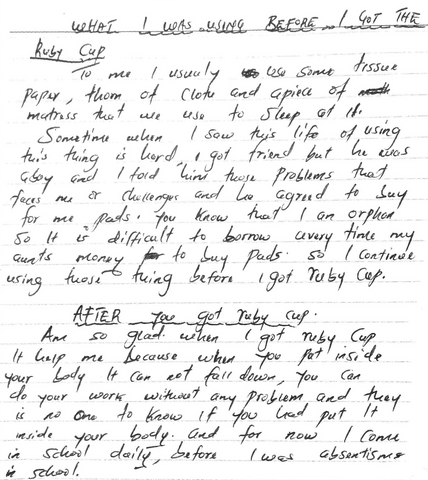 WHAT I WAS USING BEFORE I GOT THE
Ruby Cup
To me I usually use some tissue
paper, thom of clote and apiece of
matress that we use to sleep at it.
Sometime when I saw this life of using
this thing is hard, I got friend but he was
aboy and I told him those problems that
faces me or challenges and he agreed to buy
for me pads. You know that I an orphan
so It is difficult to borrow every time my
aunts money to buy pads. so I continue
using those thing before I got ruby cup.
AFTER you got ruby cup.
Am so glad when I got ruby cup
It help me because when you put inside
your body It can not fall down, you can
do your work without any problem and they
is no one to know if you had put It
inside your body. and for now I come
in school daily, before I was absentisme
in school.